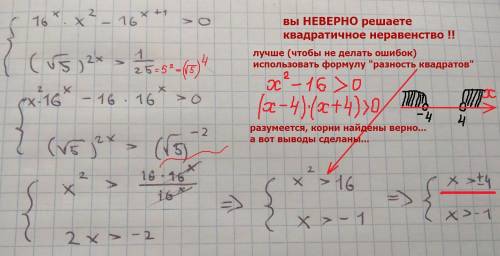 16^x · x² − 16^(x+1) > 0
вы НЕВЕРНО решаете
квадратичное неравенство !!
(√5)^(2x) > 1/25 = 5² = (√5)^4
лучше (чтобы не делать ошибок)
использовать формулу "разность квадратов"
x² − 16 > 0
(x−4)·(x+4) > 0
-4 4 x
разумеется, корни найдены верно...
а вот выводы сделаны...
x² · 16^x − 16 · 16^x > 0
(√5)^(2x) > (√5)^(−2)
x² > (16 · 16^x)/16^x ⇒ x² > 16 ⇒ x > ±4
2x > −2 x > −1 x > −1